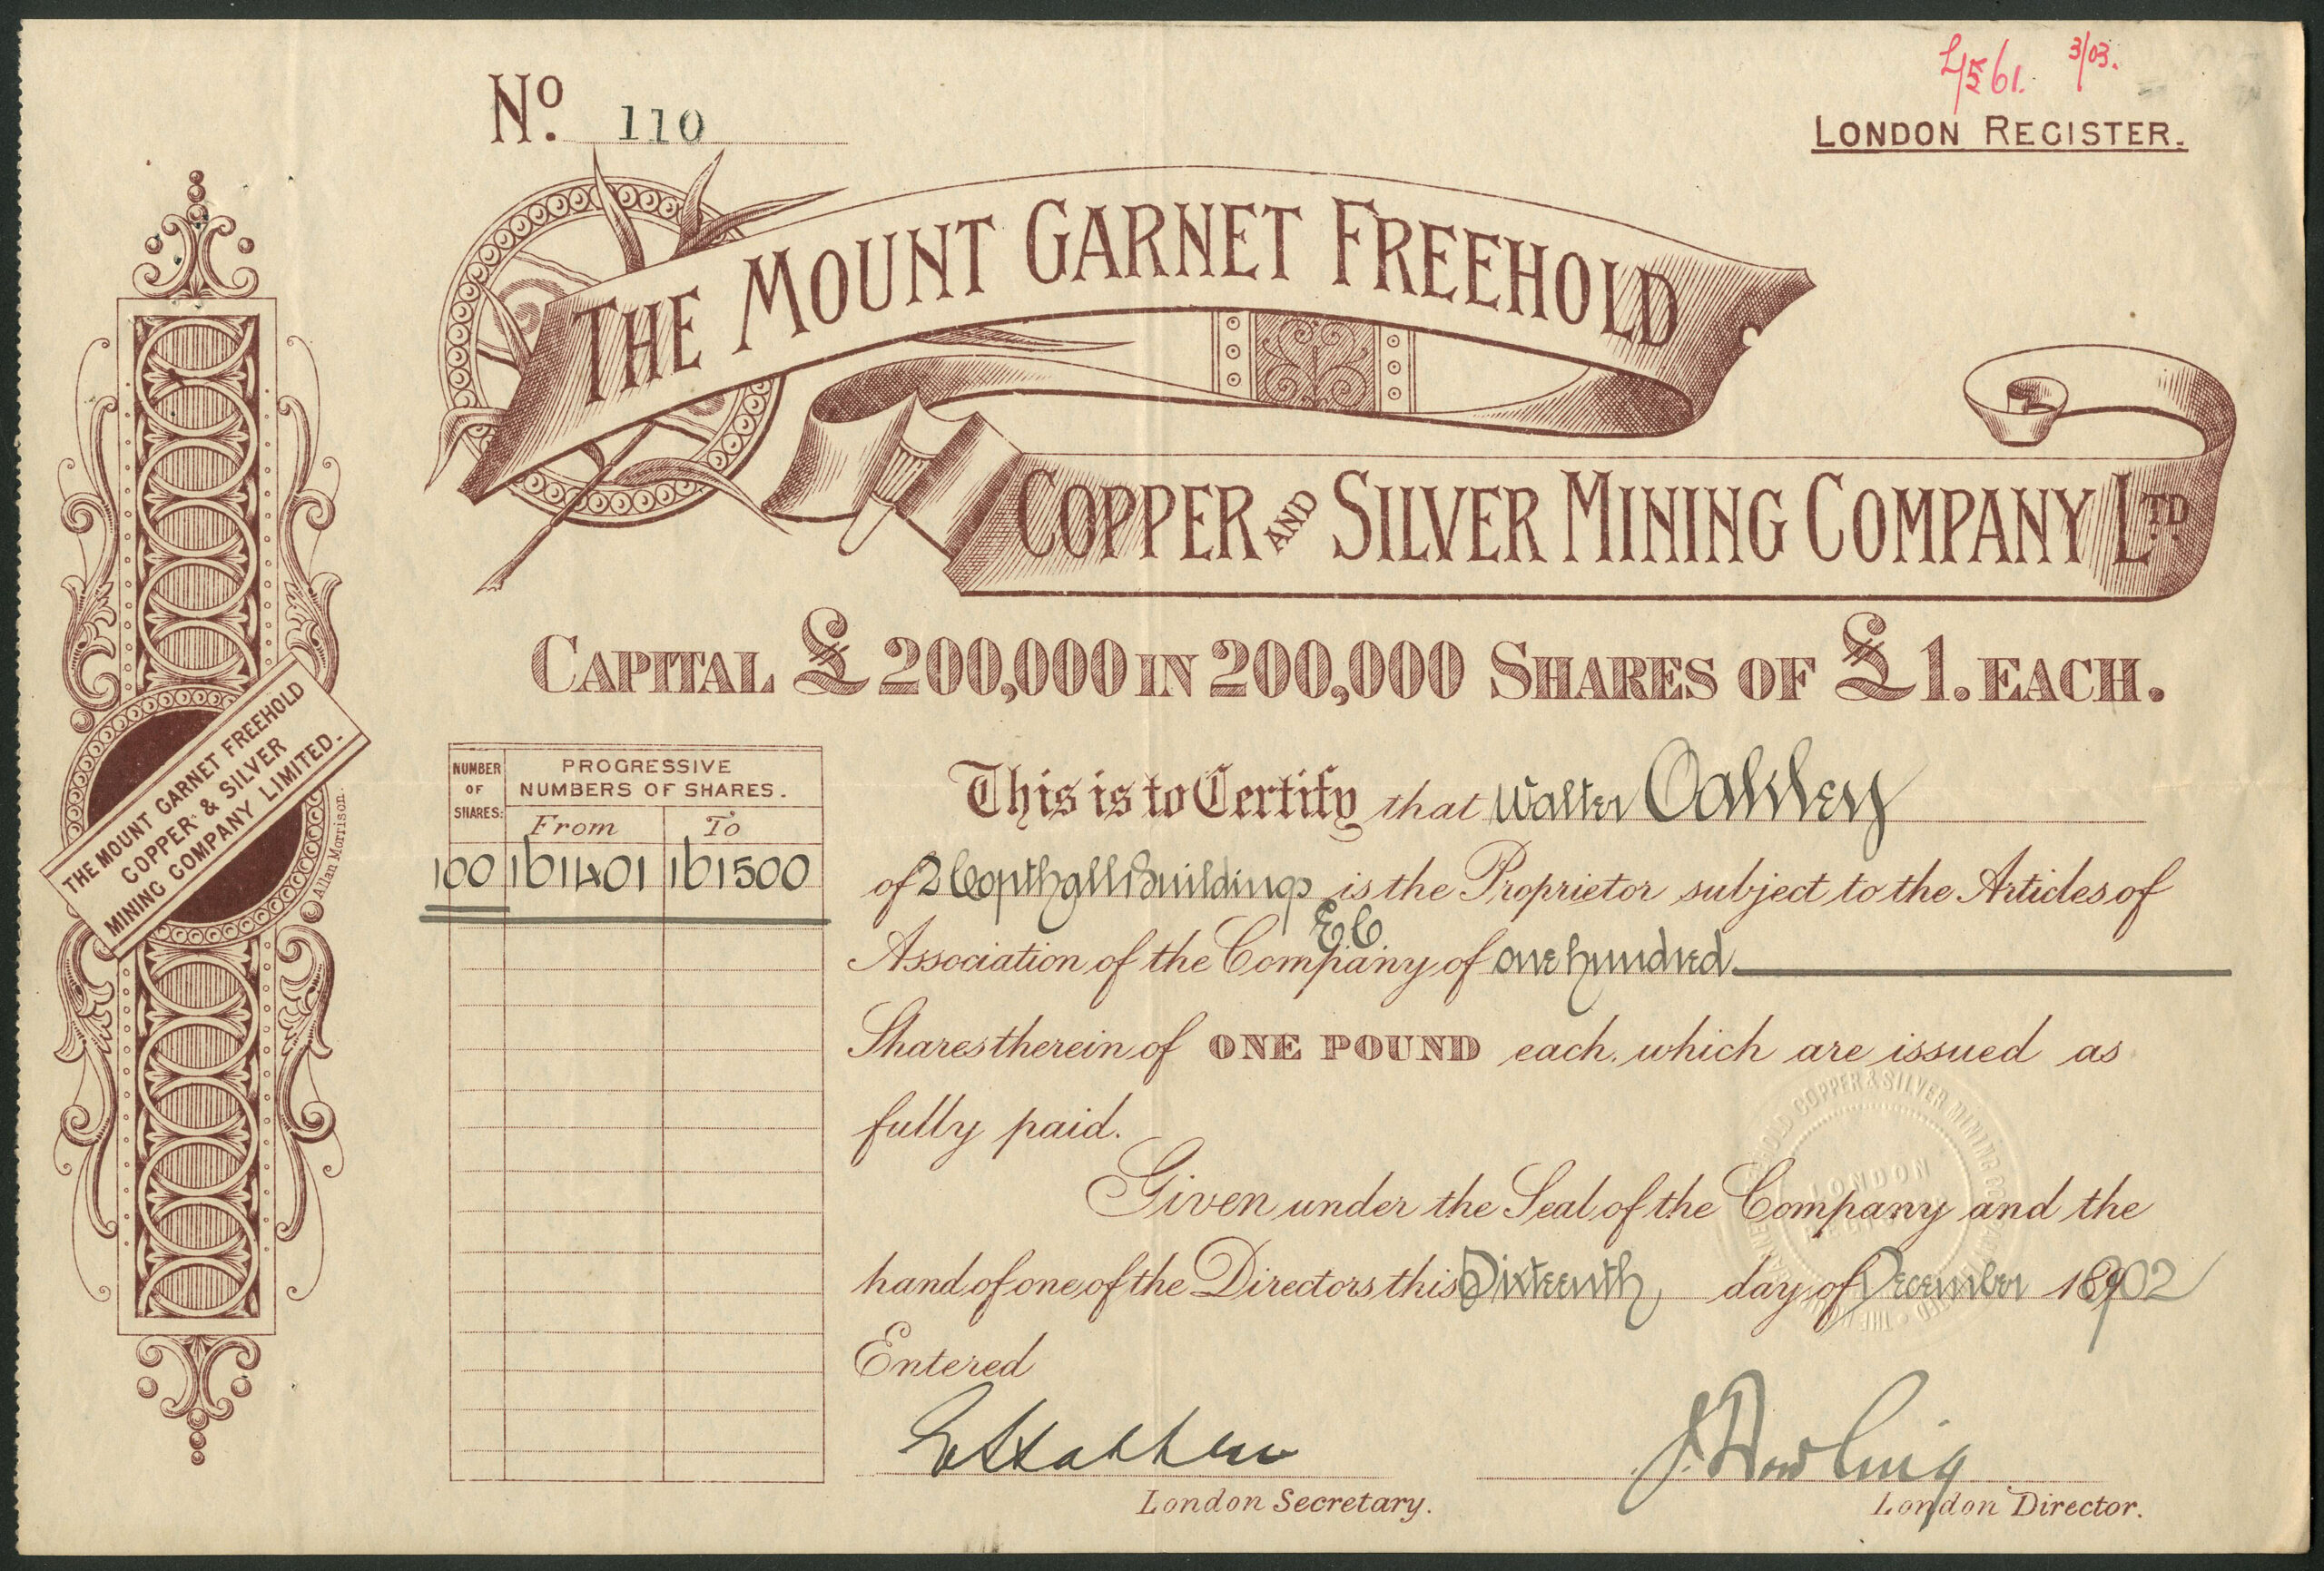 £/561. 3/03.
No. 110
LONDON REGISTER.
THE MOUNT GARNET FREEHOLD
COPPER AND SILVER MINING COMPANY LTD
CAPITAL £200,000 IN 200,000 SHARES OF £1. EACH.
THE MOUNT GARNET FREEHOLD
COPPER & SILVER
MINING COMPANY LIMITED.
Allan Morrison.
NUMBER OF SHARES:
PROGRESSIVE NUMBERS OF SHARES.
From To
100 161401 161500
This is to Certify that Walter Oakley
of 2 Copthall Buildings is the Proprietor subject to the Articles of
E C
Association of the Company of one hundred
Shares therein of ONE POUND each, which are issued as
fully paid.
Given under the Seal of the Company and the
hand of one of the Directors this Sixteenth day of December 18902
Entered
London Secretary.
J. Dowling
London Director.
COPPER & SILVER MINING
LONDON